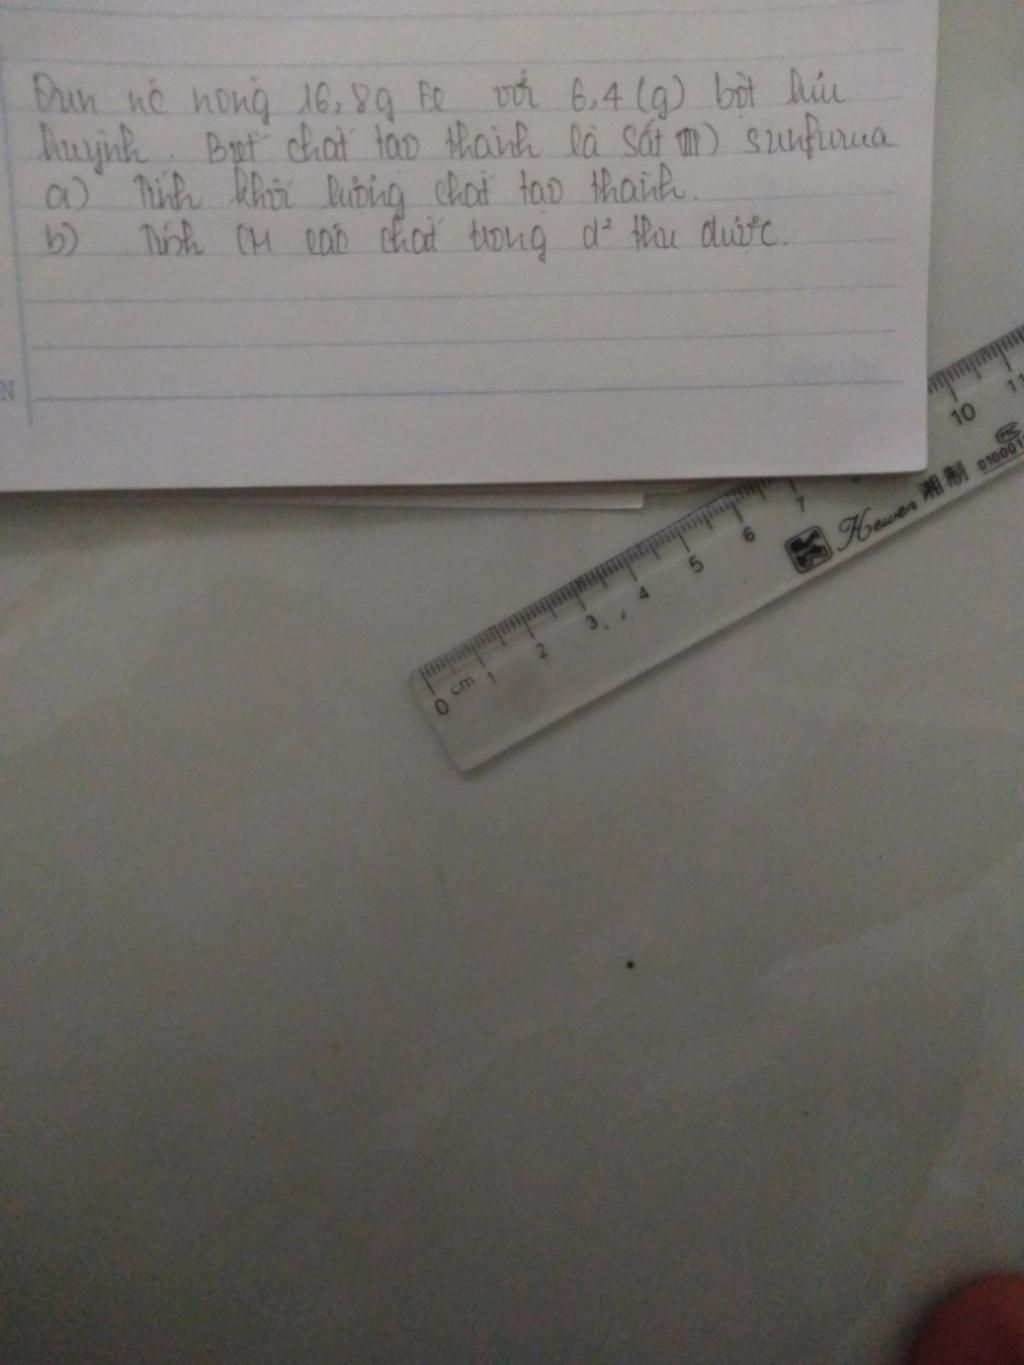 Đun nó nóng 16,8g Fe với 6,4 (g) bột lưu
huỳnh. Biết chất tạo thành là Sắt (II) sunfurua
a) Tính khối lượng chất tạo thành.
b) Tính CM các chất trong d² thu được.
N
10 11
0 cm 1 2 3 4 5 6 7
Hewen 湘制 MC
010001